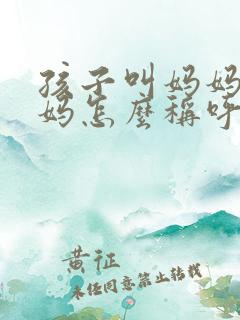 孩子叫妈妈
妈怎麼稱呼
黄征
未经同意禁止转载